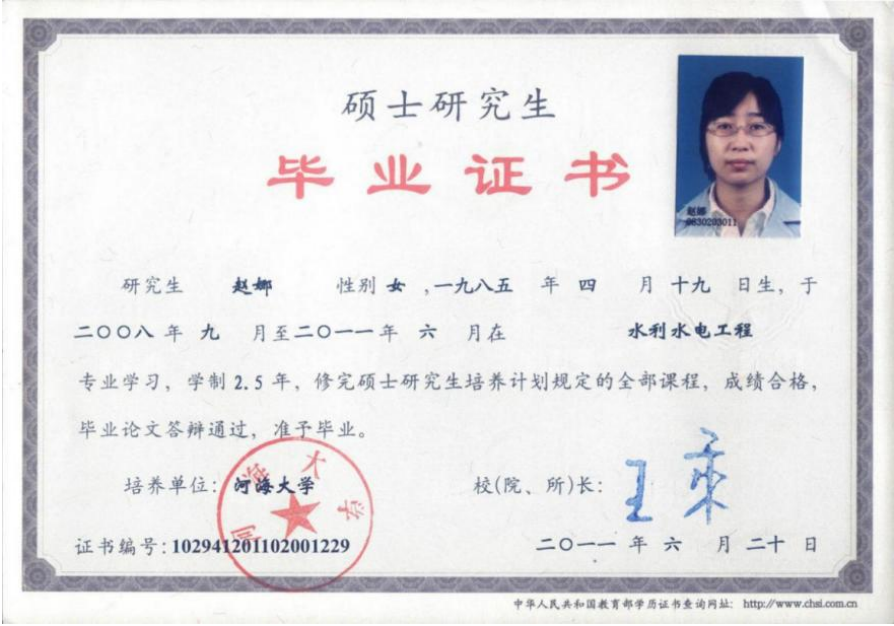 硕士研究生
毕业证书
赵娜
0830203011
研究生 赵娜 性别 女 ,一九八五 年 四 月 十九 日生, 于
二〇〇八 年 九 月至 二〇一一 年 六 月在 水利水电工程
专业学习, 学制 2.5 年, 修完硕士研究生培养计划规定的全部课程, 成绩合格,
毕业论文答辩通过, 准予毕业。
培养单位: 河海大学 校(院、所)长: 王乘
河海大学
证书编号: 102941201102001229 二〇一一 年 六 月 二十 日
中华人民共和国教育部学历证书查询网址: http://www.chsi.com.cn